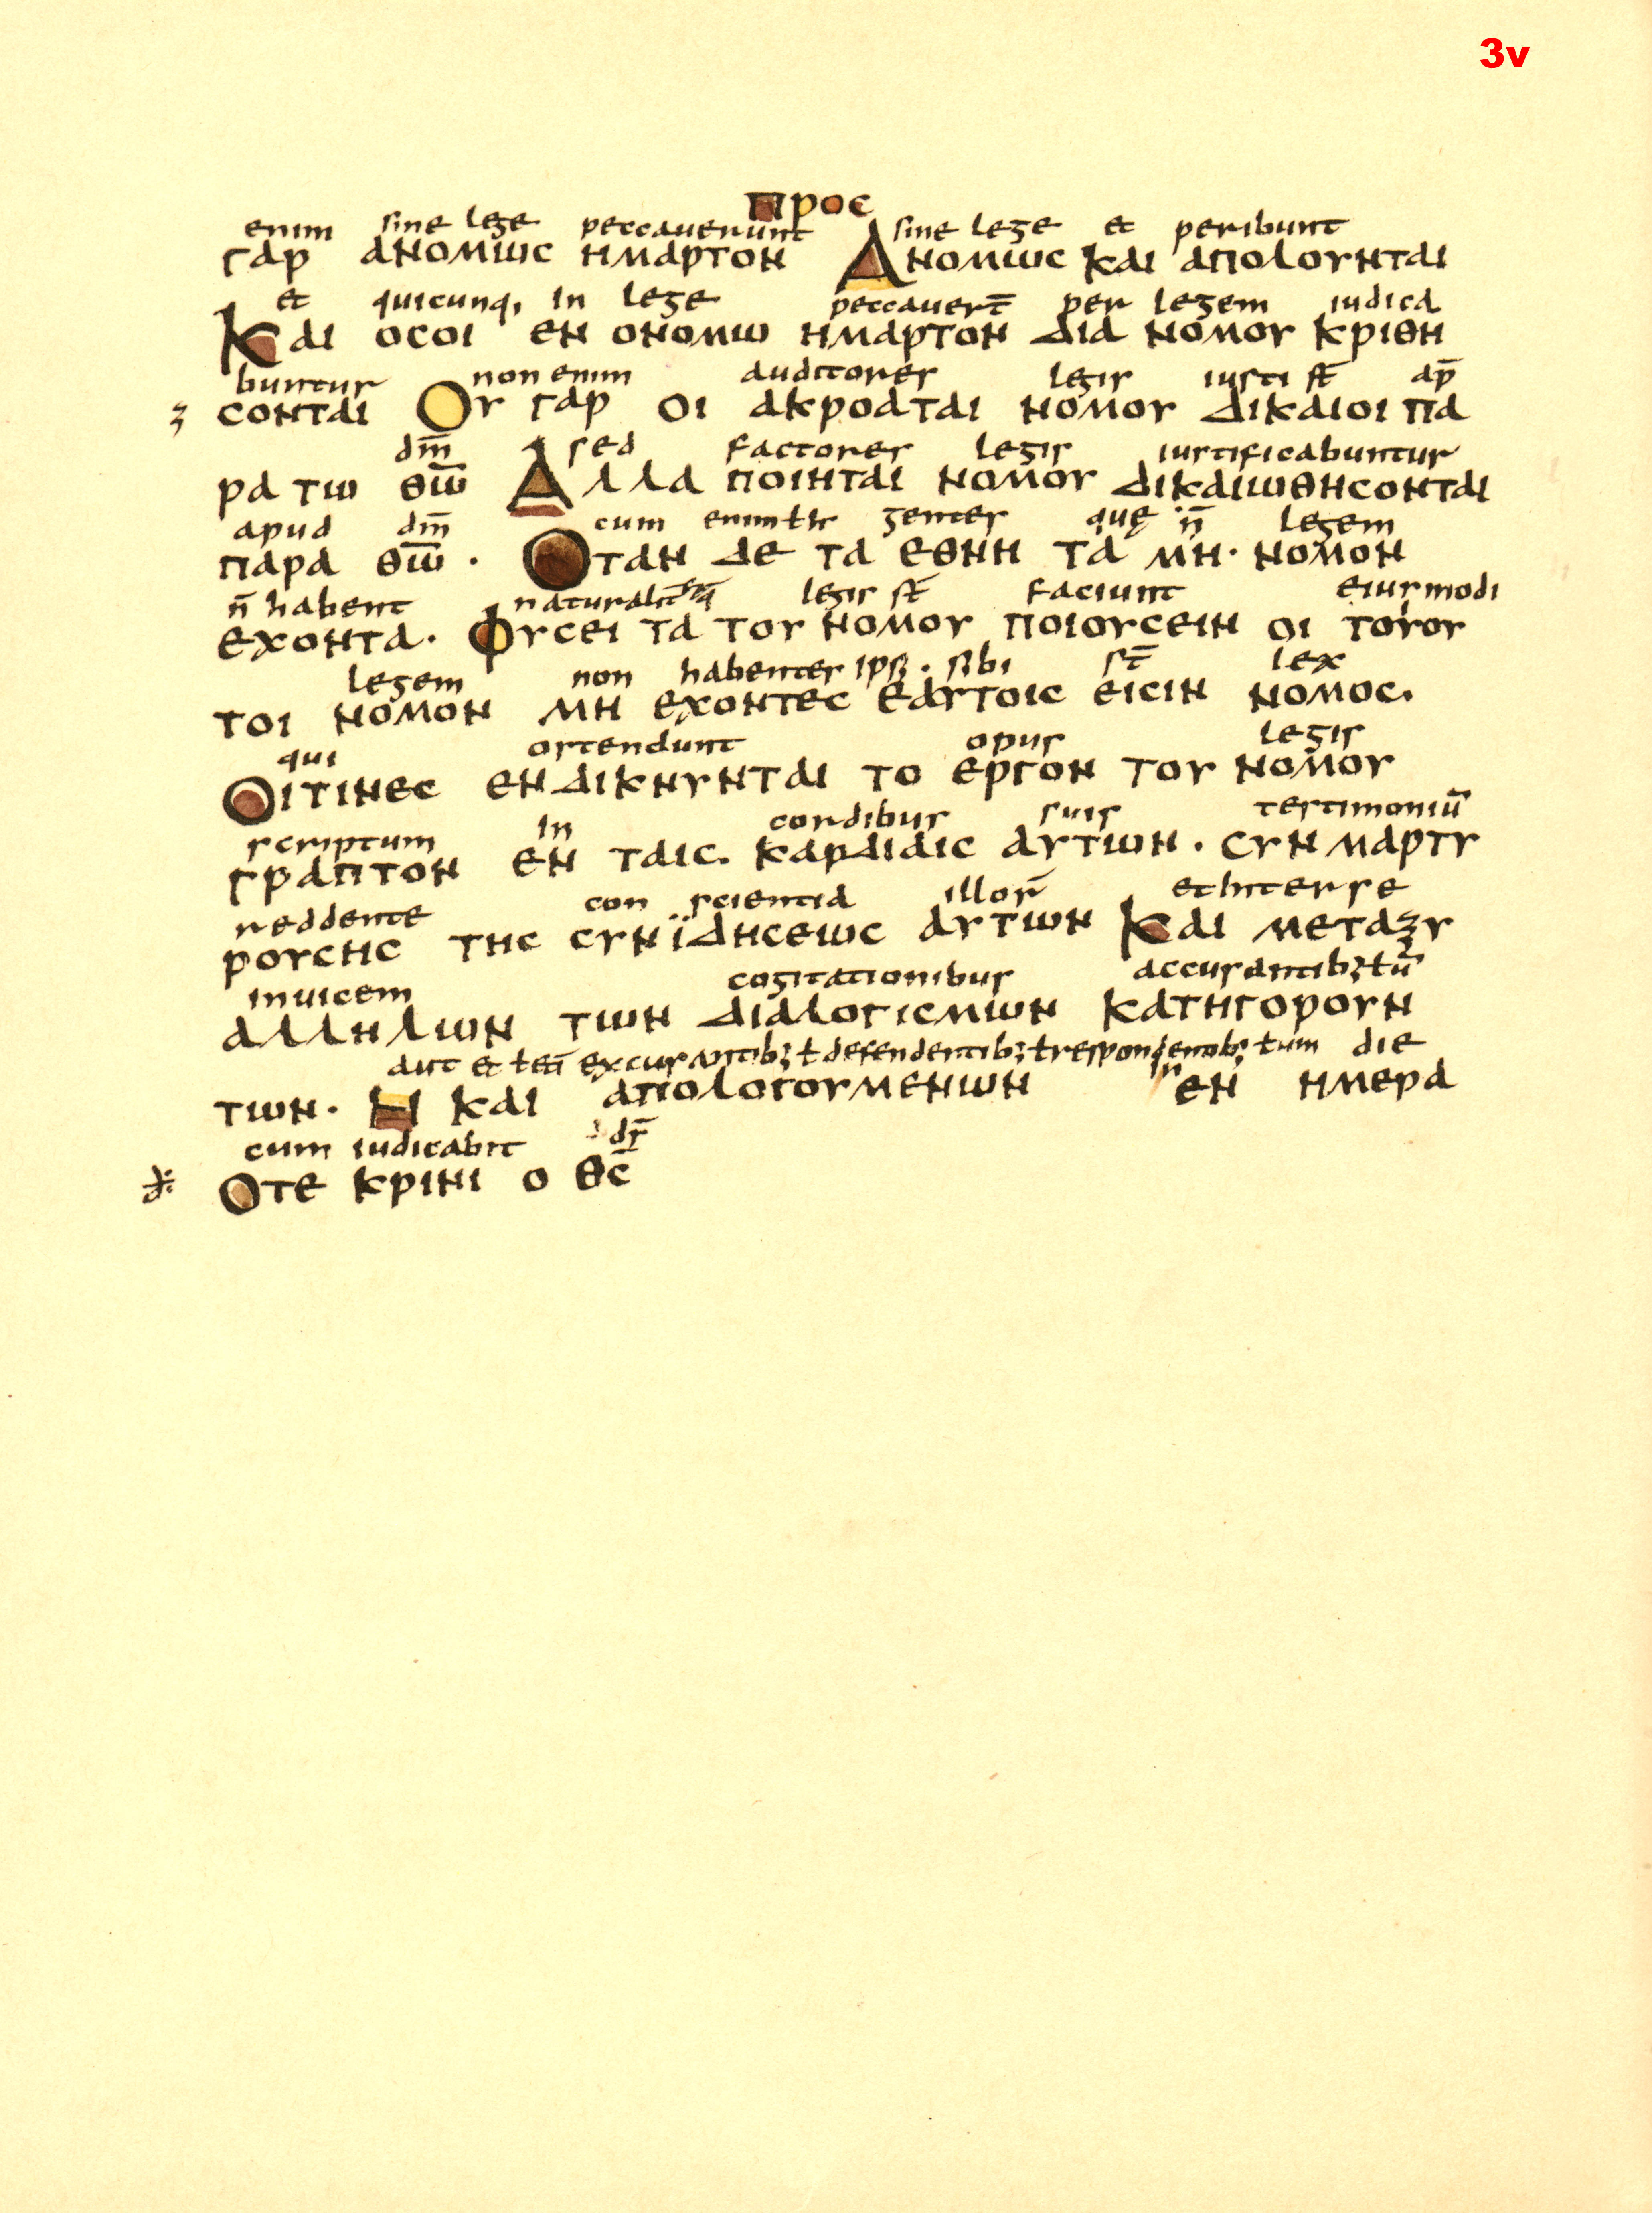 3v
προς
enim sine lege peccauerunt sine lege et peribunt
γαρ ανομως ημαρτον Ανομως και απολουνται
et quicunq, in lege peccauert̄ per legem iudica
Και οσοι εν ονομω ημαρτον δια νομου κριθη
buntur non enim auditores legis iusti st̄ ap̄
σονται Ου γαρ οι ακροαται νομου δικαιοι πα
dm̄ sed factores legis iustificabuntur
ρα τω θω̄ Αλλα ποιηται νομου δικαιωθησονται
apud dm̄ cum enim gentes quę n̄ legem
παρα θω̄ · Οταν δε τα εθνη τα μη · νομον
n̄ habent legis st̄ faciunt eiusmodi
εχοντα · Φυσει τα του νομου ποιουσειν οι τουου
legem non habentes ipsi · sibi st̄ lex
τοι νομον μη εχοντες εαυτοις εισιν νομος.
qui ostendunt opus legis
Οιτινες ενδικνυνται το εργον του νομου
scriptum in cordibus suis testimoniū
γραπτον εν ταις. καρδιαις αυτων · συν μαρτυ
reddente con scientia illor̄ et inter se
ρουσης της συνϊδησεως αυτων Και μεταξυ
inuicem cogitationibus accusantib; ł ū
αλληλων των διαλογισμων κατηγορουν
aut et ł etī excusantib; ł defendentib; ł respondentib; ł um die
των · Η και απολογουμενων εν ημερα
cum iudicabit ds̄
Οτε κρινι ο θς̄